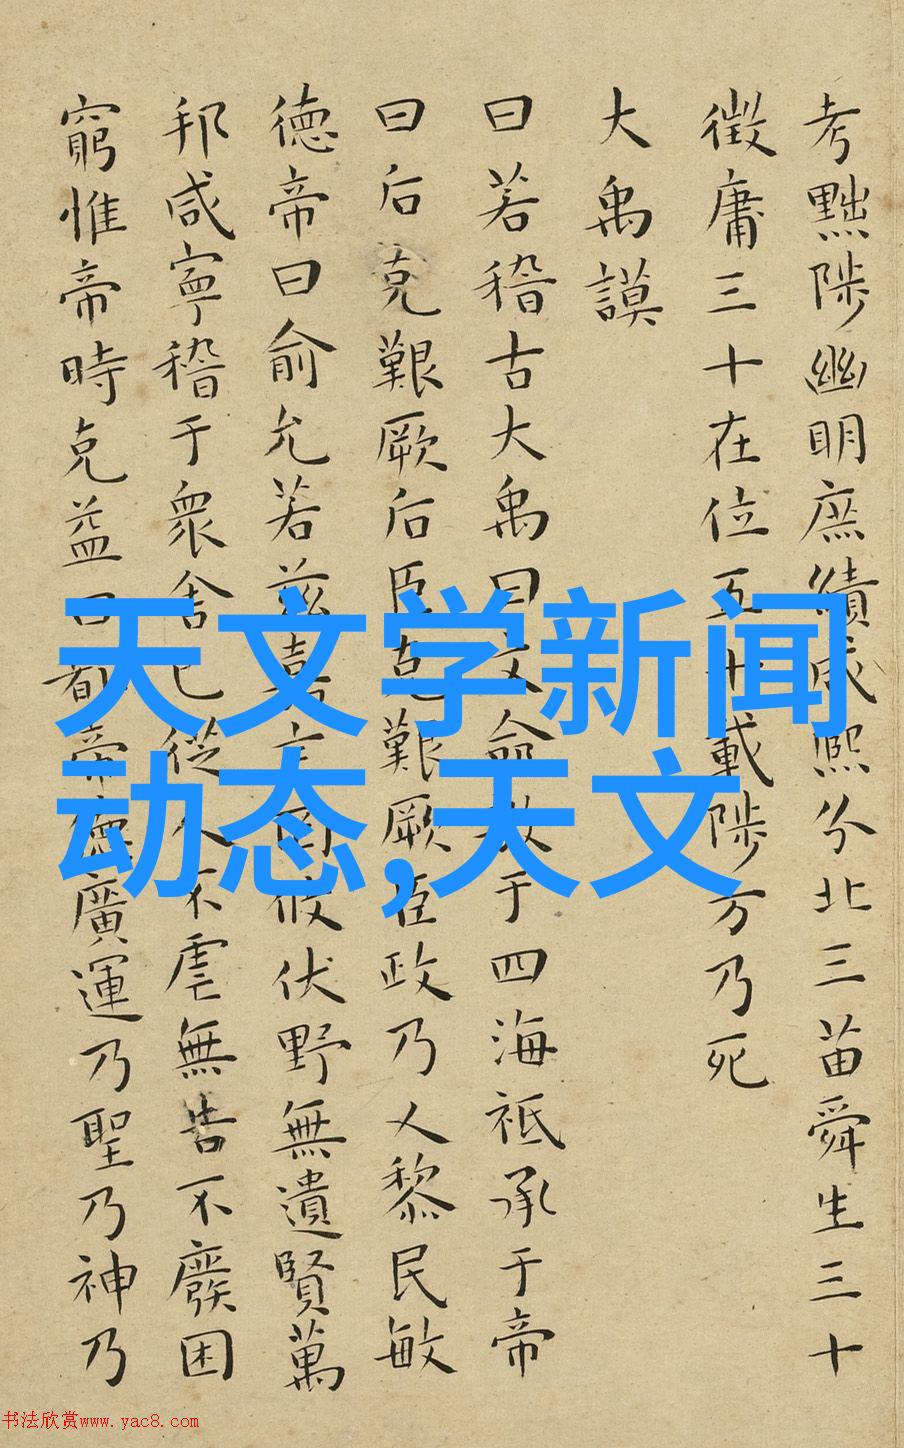 考黜陟幽明庶績咸熙分北三苗舜生三十
徵庸三十在位五十載陟方乃死
大禹謨
曰若稽古大禹曰文命敷于四海祗承于帝
曰后克艱厥后臣克艱厥臣政乃乂黎民敏
德帝曰俞允若茲嘉言罔攸伏野無遺賢萬
邦咸寧稽于衆舍已從人不虐無告不廢困
窮惟帝時克益曰都帝德廣運乃聖乃神乃
天文学新闻
动态,天文
书法欣赏www.yac8.com